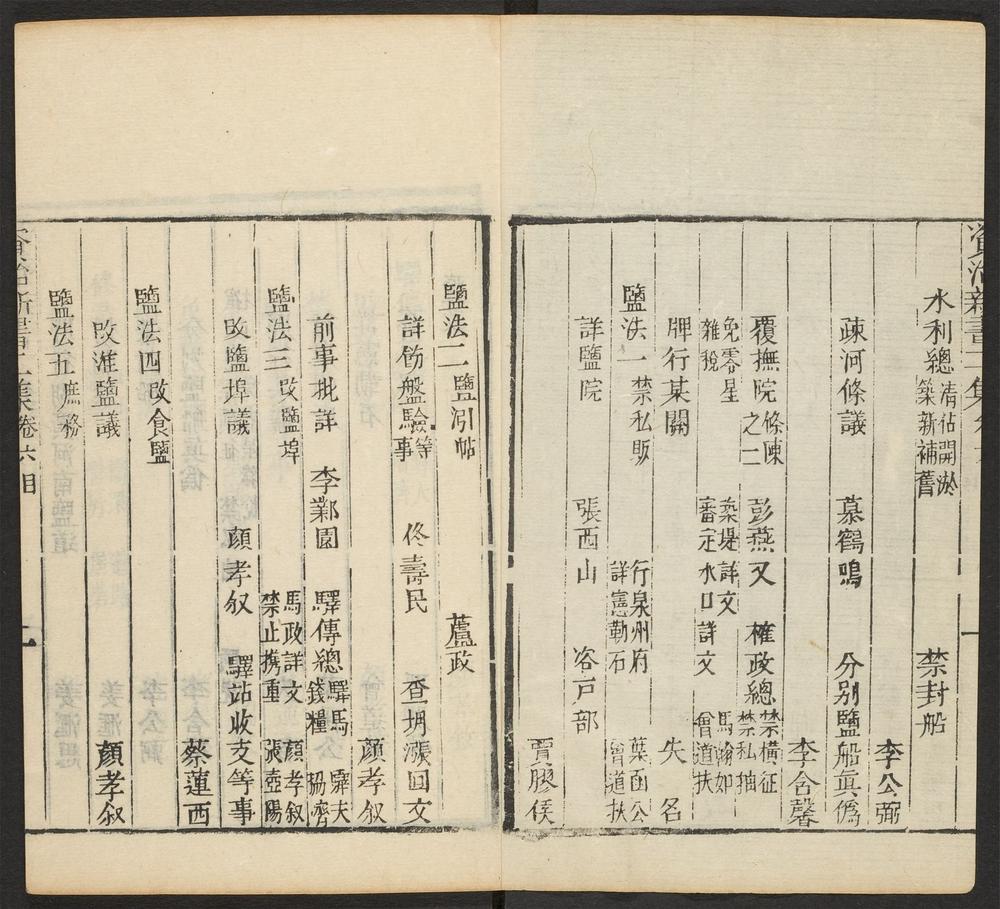 資治新書二集卷六
一
水利總 清佔開淤 築新補舊 禁封船
李公弼
疎河條議 慕鶴鳴 分别鹽船眞僞
李含馨
覆撫院條陳之二 彭燕又 𣙜政總 禁橫征 禁私抽
免零星雜稅 築堤詳文 審定水口詳文 馬翰如 曾道扶
牌行某關 失名
鹽法一 禁私販 行泉州府 詳憲勒石 葉函公 曾道扶
詳鹽院 張西山 咨戸部
賈膠侯
鹽法二 鹽引帖 蘆政
詳飭盤驗等事 佟壽民 查坍漲回文
顏孝叙
前事批詳 李鄴園 驛傳總 驛馬 錢糧 驛夫 協濟
鹽法三 改鹽埠 馬政詳文 禁止携重 顏孝叙 張壺陽
改鹽埠議 顏孝叙 驛站收支等事
蔡蓮西
鹽法四 改食鹽
改淮鹽議 顏孝叙
鹽法五 庶務
資治新書二集卷六目
二